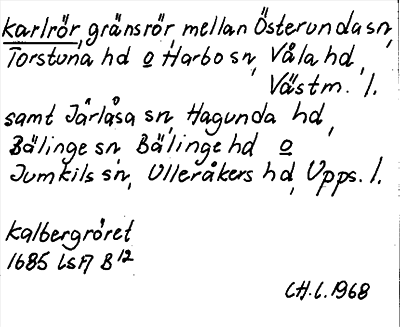 Karlrör, gränsrör mellan Österunda sn,
Torstuna hd o Harbo sn, Våla hd,
Västm. l.
samt Järlåsa sn, Hagunda hd,
Bälinge sn, Bälinge hd o
Jumkils sn, Ulleråkers hd, Upps. l.
Kalbergröret
1685 LSA B 12
CH.l. 1968